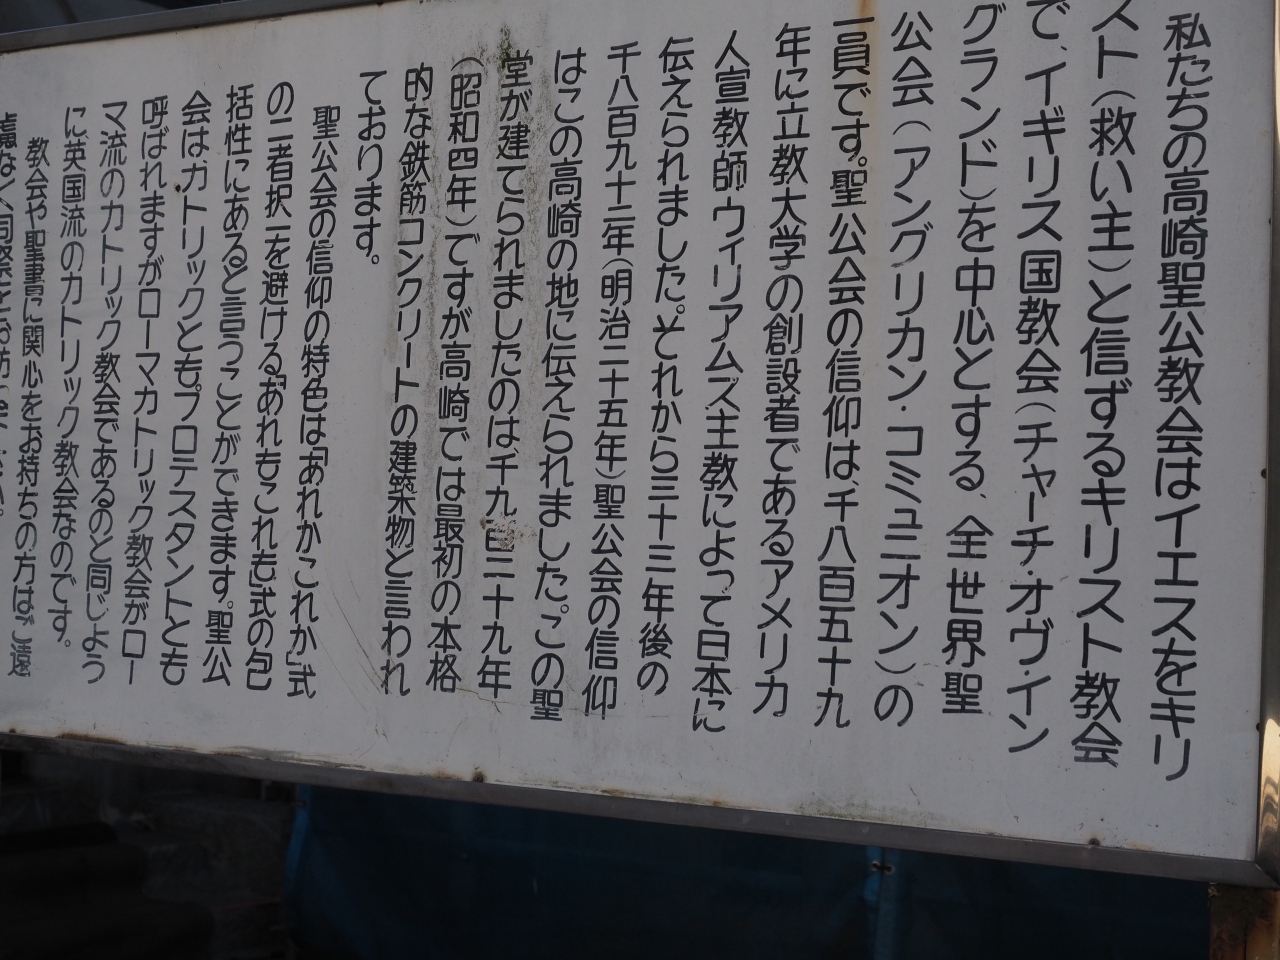 私たちの高崎聖公教会はイエスをキリ
スト(救い主)と信ずるキリスト教会
で、イギリス国教会(チャーチ・オヴ・イン
グランド)を中心とする、全世界聖
公会(アングリカン・コミュニオン)の
一員です。聖公会の信仰は、千八百五十九
年に立教大学の創設者であるアメリカ
人宣教師ウィリアムズ主教によって日本に
伝えられました。それから三十三年後の
千八百九十二年(明治二十五年)聖公会の信仰
はこの高崎の地に伝えられました。この聖
堂が建てられましたのは千九百二十九年
(昭和四年)ですが高崎では最初の本格
的な鉄筋コンクリートの建築物と言われ
ております。
聖公会の信仰の特色は「あれかこれか」式
の二者択一を避ける「あれもこれも」式の包
括性にあると言うことができます。聖公
会はカトリックとも、プロテスタントとも
呼ばれますがローマカトリック教会がロー
マ流のカトリック教会であるのと同じよう
に、英国流のカトリック教会なのです。
教会や聖書に関心をお持ちの方はご遠
慮なく